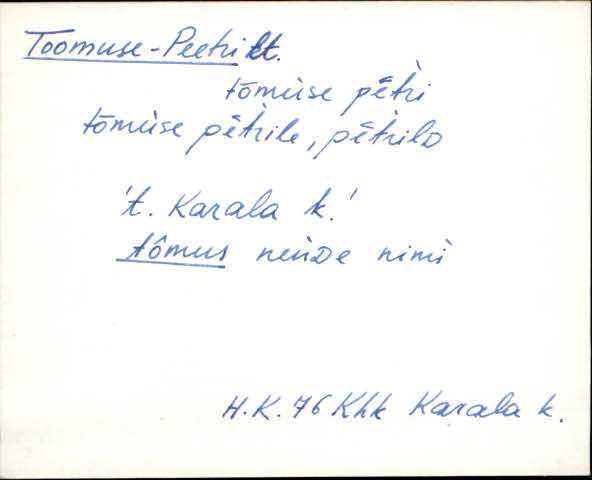 Toomuse-Peetri tt.
tōmùse pē̆tri
tōmùse pē̆trile, pē̆trilᴅ
't. Karala k.'
tômus neiᴅe nimi
H.K. 76 Khk Karala k.